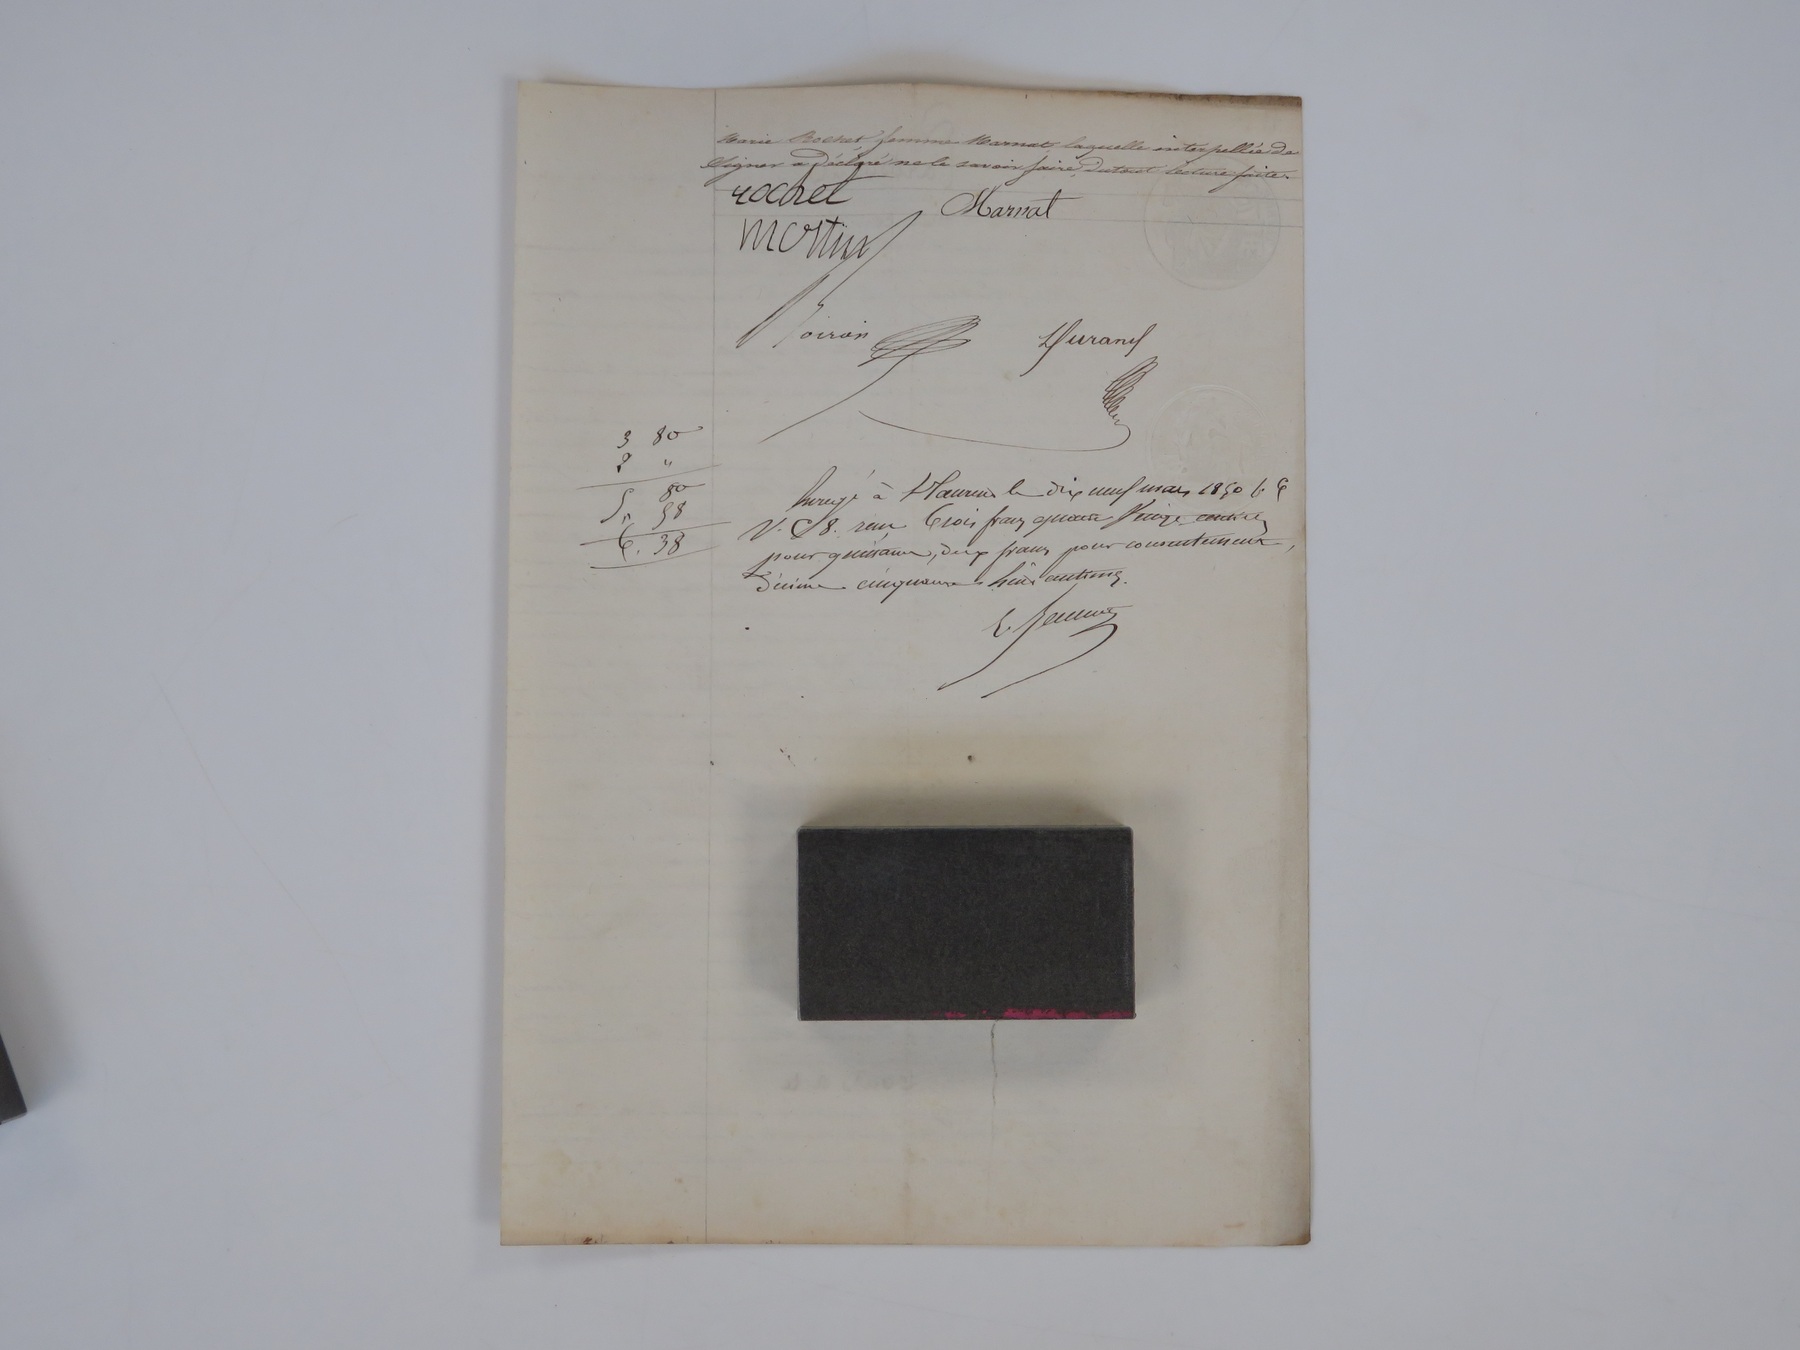 Marie Rochet femme Marnat, laquelle interpellée de
Signer a Déclaré ne le savoir faire, dutout lecture faite.
rochet
Marnat
Martin
Voiron
Durand
3 80
2 "
5, 80
5, 58
6. 38
à le dix neuf mars 1850 f. 6
V. C8. reçu trois francs quatre Vingt centimes
pour quittance, deux francs pour consentement,
Décime cinquante huit centimes.